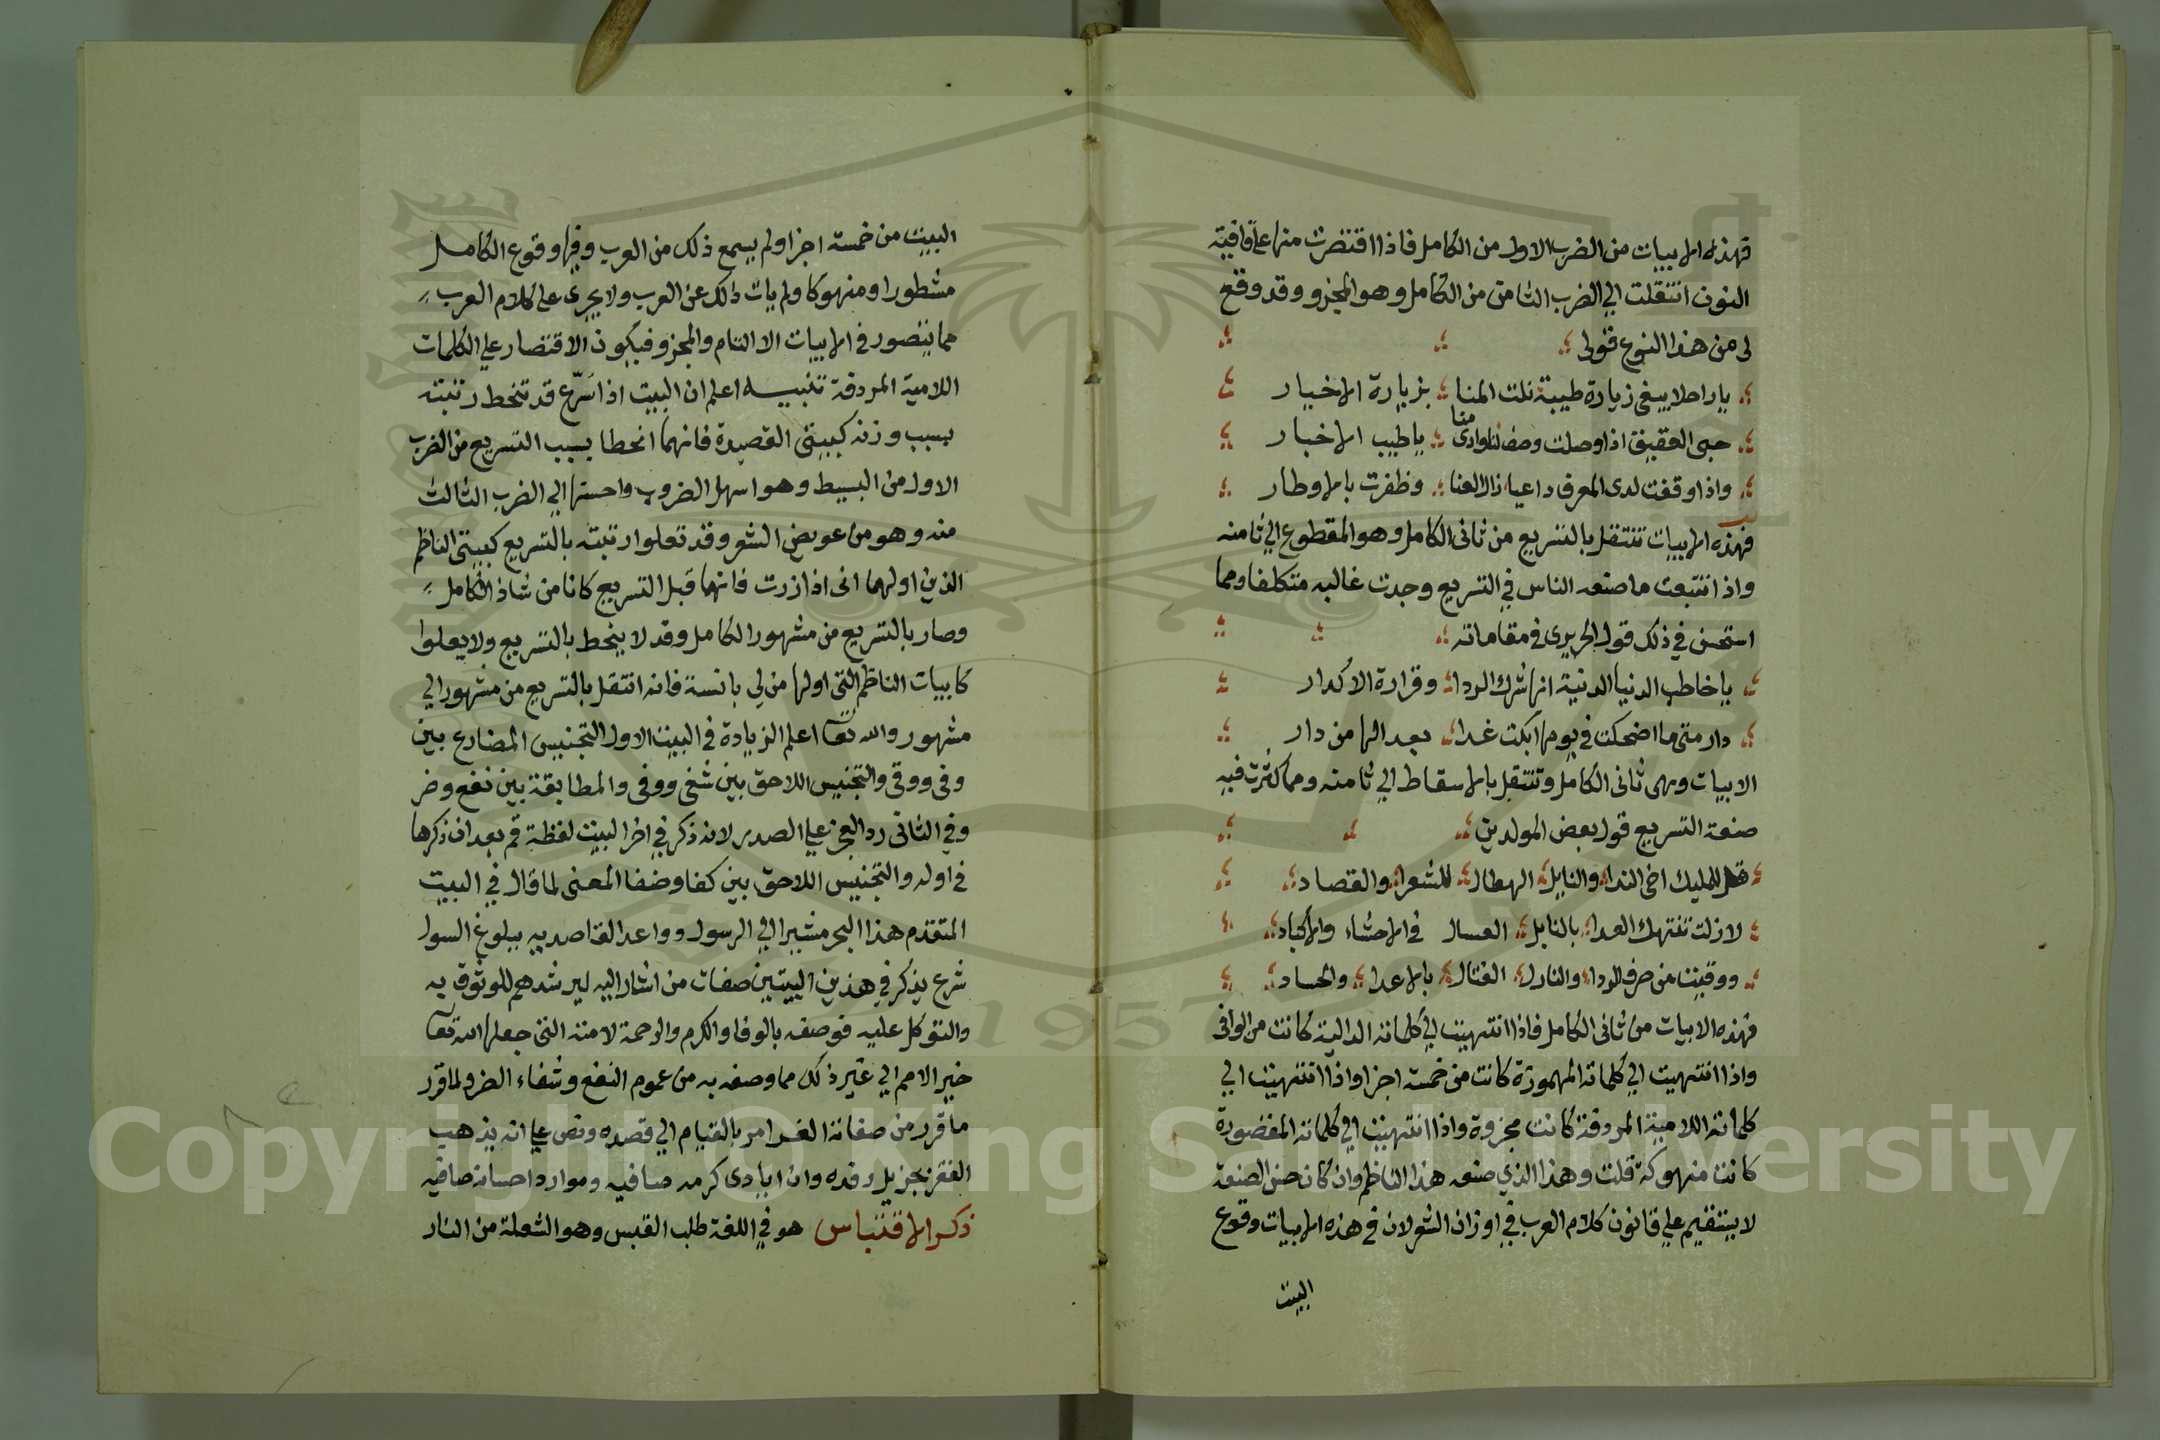 فهذه الابيات من الضرب الاول من الكامل فاذا اقتصرت منها علي قافية
النون انتقلت الي الضرب الثامن من الكامل وهو المجزو وقد وقع
لى من هذا النوع قولى
يا راحلا يبغى زيارة طيبة نلت المنا بزيارة الاخيار
حى العقيق اذا وصلت وصف لنا وادى منا يا طيب الاخبار
واذا وقفت لدى المعرف داعيا زال العنا وظفرت بالاوطار
فهذه الابيات تنتقل بالتسريع من ثانى الكامل وهو المقطوع الي ثامنه
واذا تتبعت ما صنعه الناس في التسريع وجدت غالبه متكلفا ومما
استحسن في ذلك قول الحريرى فى مقاماته
يا خاطب الدنيا الدنية انها شرك الردا وقرارة الاكدار
دار متى ما اضحكت في يومها ابكت غدا بعدا لها من دار
الابيات وهى ثانى الكامل وتنتقل بالاسقاط الي ثامنه ومما كثرت فيه
صنعة التسريع قول بعض المولدين
قل للمليك اخى الندا والنايل الهطال للشعرا والقصاد
لازلت تنتهك العدا بالنابل العسال فى الاحشاء والاكباد
ووقيت من صرف الردا والنازل القتال بالاعدا والحساد
فهذه الابيات من ثانى الكامل فاذا انتهيت الي كلماته الدالية كانت من الوافى
واذا انتهيت الي كلماته المهموزة كانت من خمسة اجزا واذا انتهيت الي
كلماته اللامية المردفة كانت مجزوة واذا انتهيت الي كلماته المقصورة
كانت منهوكة قلت وهذا الذي صنعه هذا الناظم وان كان حسن الصنعة
لا يستقيم علي قانون كلام العرب في اوزان الشعر لان فى هذه الابيات وقوع
البيت
البيت من خمسة اجزا ولم يسمع ذلك من العرب وفيها وقوع الكامل
مشطورا ومنهوكا ولم يات ذالك عن العرب ولا يجرى علي كلام العرب
مما يتصور فى الابيات الا التام والمجزو فيكون الاقتصار علي الكلمات
اللامية المردفة تنبيه اعلم ان البيت اذا سرع قد تنحط رتبته
بسبب وزنه كبيتى القصيدة فانهما انحطا بسبب التسريع من الضرب
الاول من البسيط وهو اسهل الضروب واحسنها الي الضرب الثالث
منه وهو من عويص الشعر وقد تعلوا رتبته بالتسريع كبيتى الناظم
الذين اولهما انى اذا زرت فانهما قبل التسريع كانا من شاذ الكامل
وصار بالتسريع من مشهور الكامل وقد لا ينحط بالتسريع ولا يعلوا
كابيات الناظم التى اولها من لي بانسة فانه انتقل بالتسريع من مشهور الي
مشهور والله تعا اعلم الزيادة فى البيت الاول التجنيس المضارع بين
وفى ووقى والتجنيس اللاحق بين شفى ووفى والمطابقة بين نفع وضر
وفي الثانى رد العجز علي الصدر لانه ذكر في اخر البيت لفظة قم بعد ان ذكرها
فى اوله والتجنيس اللاحق بين كفا وضفا المعنى لما قال في البيت
المتقدم هذا البحر مشيرا الي الرسول وواعد القاصد به ببلوغ السول
شرع يذكر في هذين البيتين صفات من اشار اليه ليرشدهم للوثوق به
والتوكل عليه فوصفه بالوفا والكرم والرحمة لامته التى جعلها الله تعا
خير الامم الي غير ذلك مما وصفه به من عموم النفع وشفاء الضر ولما قرر
ما قرر من صفاته الغر امر بالقيام الي قصده ونص علي انه يذهب
الفقر بجزيل رفده وان ايادى كرمه صافيه وموارد احسانه صافيه
ذكر الاقتباس هو في اللغة طلب القبس وهو الشعلة من النار
Copyright © King Saud University
1957